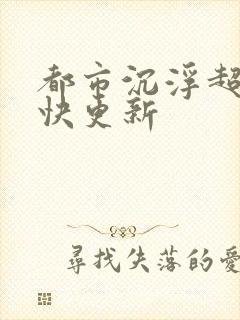 都市沉浮超
快更新
尋找失落的愛